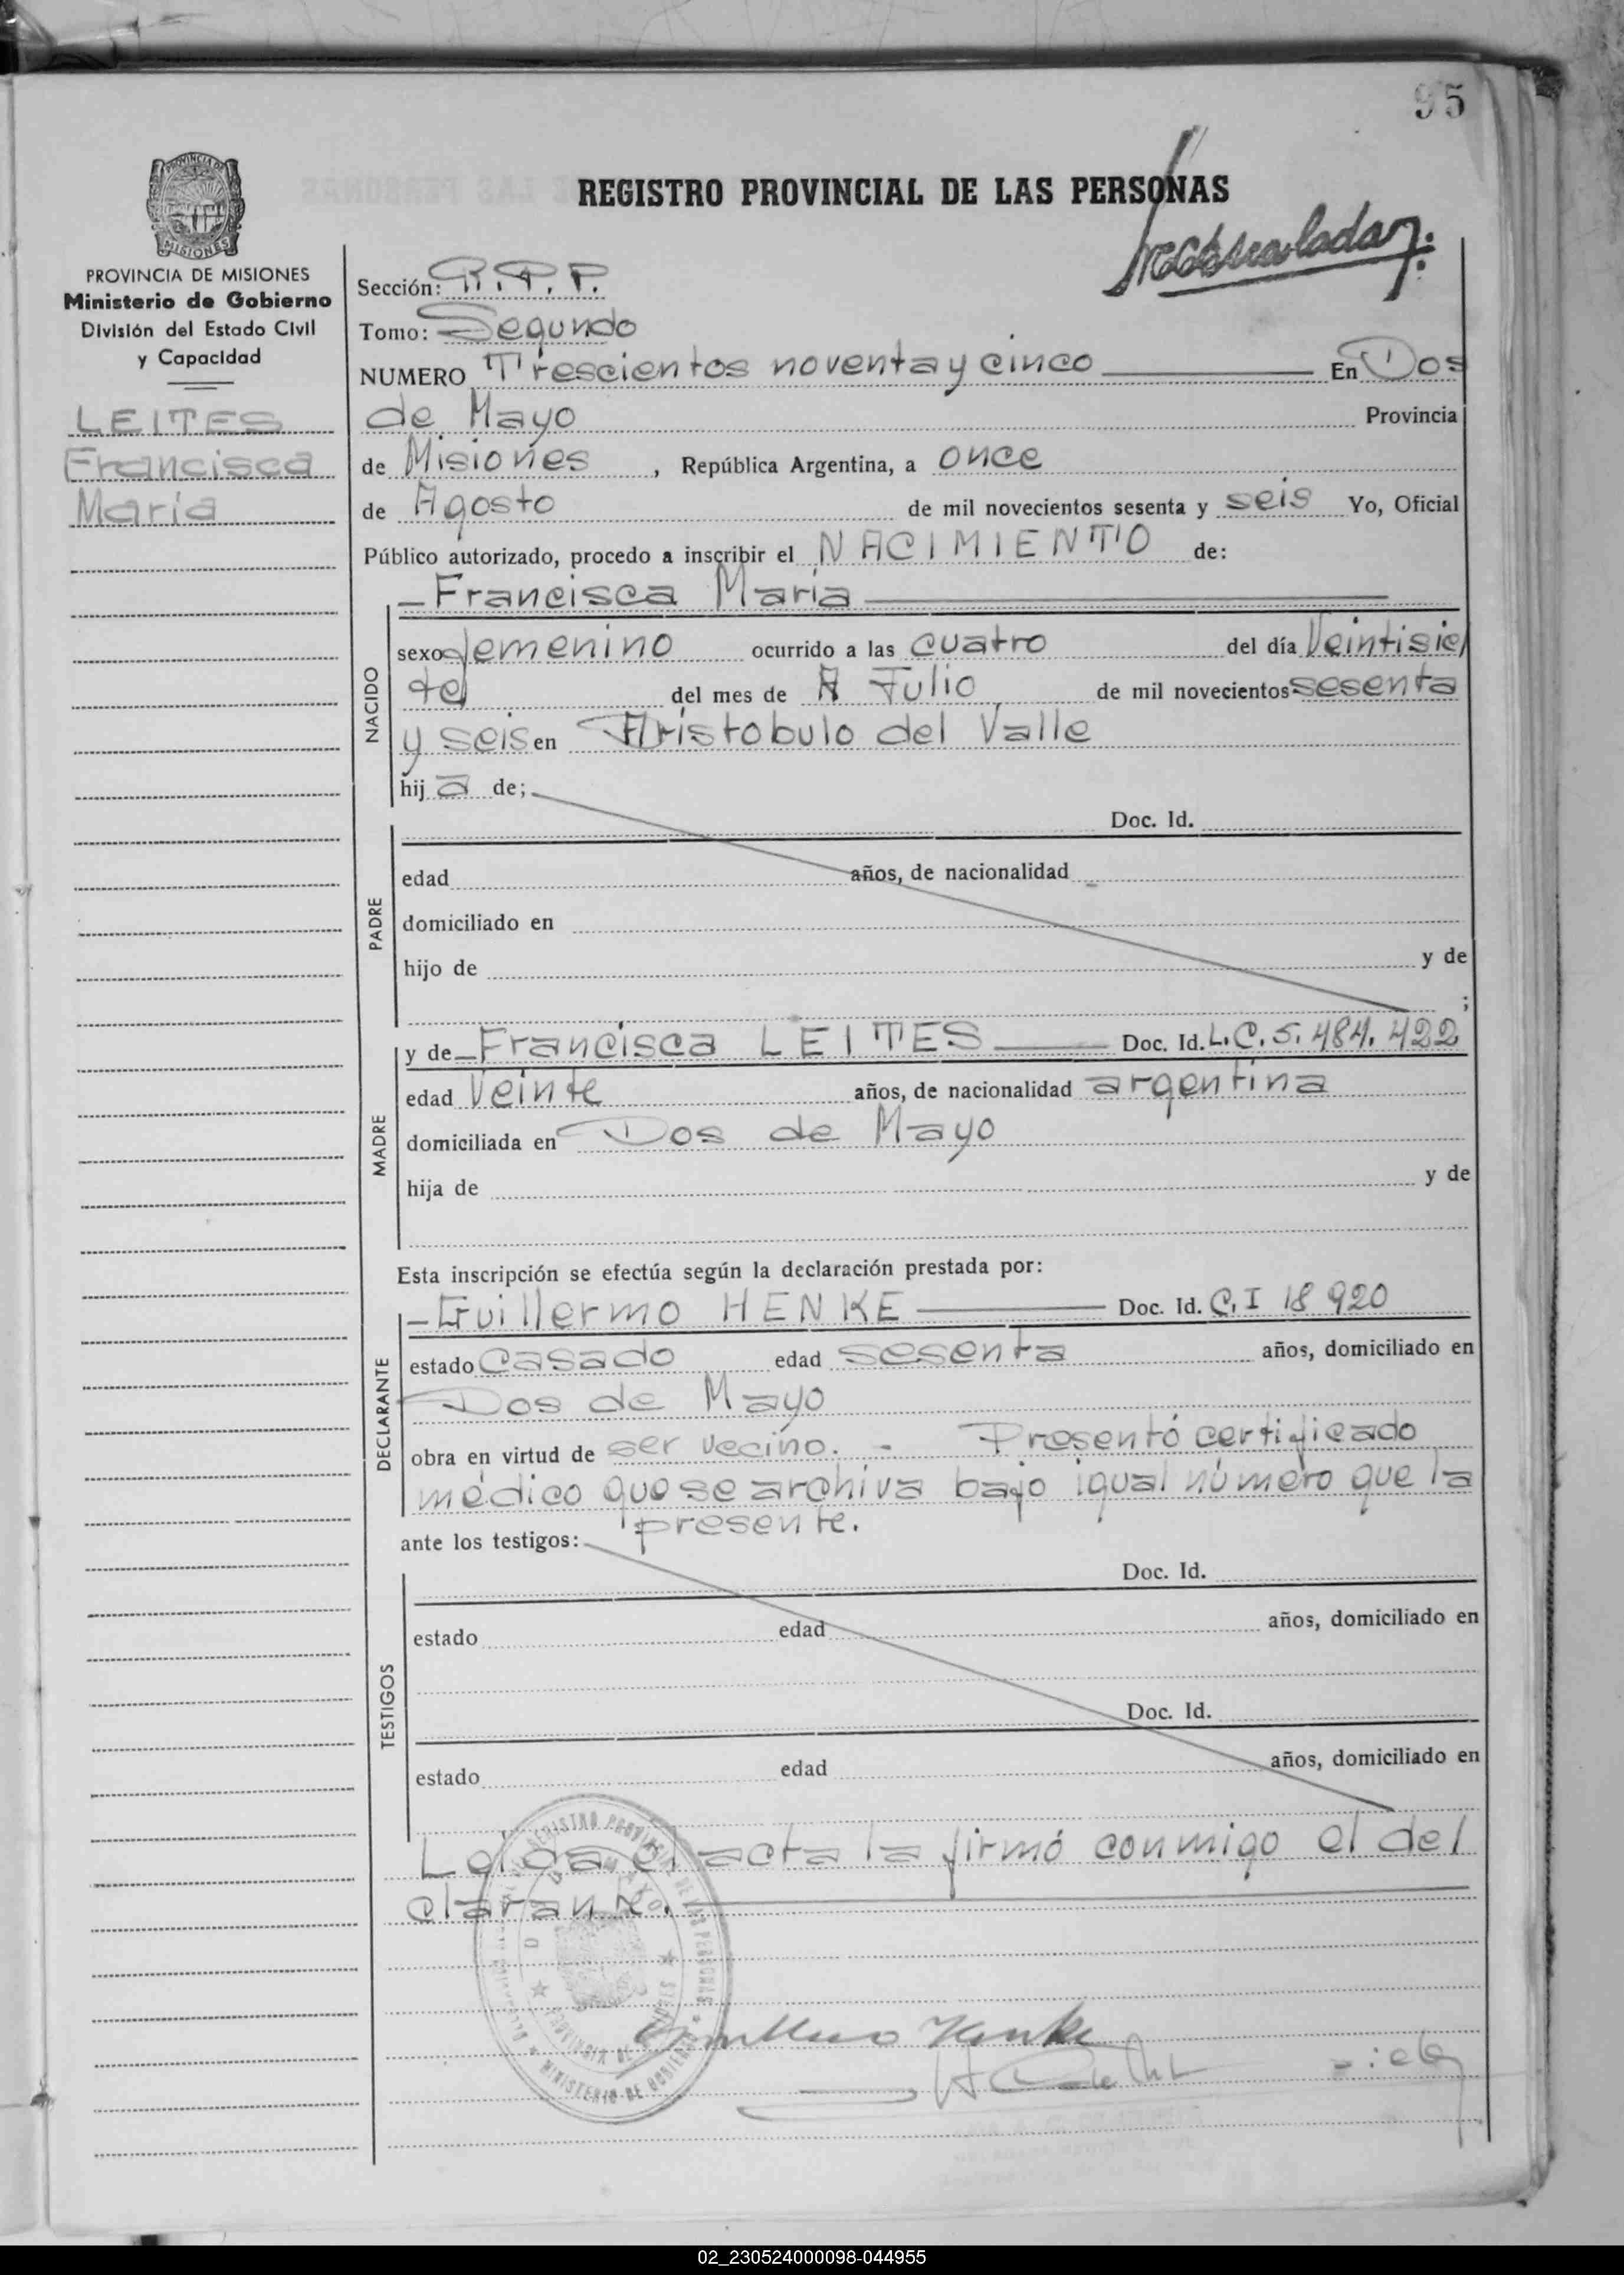 95
REGISTRO PROVINCIAL DE LAS PERSONAS
PROVINCIA DE MISIONES
Ministerio de Gobierno
División del Estado Civil
y Capacidad
LEITES
Francisca
María
Sección: R.P.P.
Tomo: Segundo
NUMERO Trescientos noventa y cinco En Dos
de Mayo Provincia
de Misiones, República Argentina, a once
de Agosto de mil novecientos sesenta y seis Yo, Oficial
Público autorizado, procedo a inscribir el NACIMIENTO de:
NACIDO
Francisca María
sexo femenino ocurrido a las cuatro del día Veintisie
te del mes de Julio de mil novecientos sesenta
y seis en Aristobulo del Valle
hija de;
PADRE
Doc. Id.
edad años, de nacionalidad
domiciliado en
hijo de y de
;
MADRE
y de Francisca LEITES Doc. Id. L.C. 5.484.422
edad Veinte años, de nacionalidad argentina
domiciliada en Dos de Mayo
hija de y de
Esta inscripción se efectúa según la declaración prestada por:
DECLARANTE
Guillermo HENKE Doc. Id. C.I 18 920
estado Casado edad sesenta años, domiciliado en
Dos de Mayo
obra en virtud de ser vecino. - Presentó certificado
médico que se archiva bajo igual número que la
presente.
ante los testigos:
TESTIGOS
Doc. Id.
estado edad años, domiciliado en
Doc. Id.
estado edad años, domiciliado en
Leida el acta la firmó conmigo el de
clarante.
REGISTRO PROVINCIAL DE LAS PERSONAS
MINISTERIO DE GOBIERNO
Guillermo Henke
02_230524000098-044955